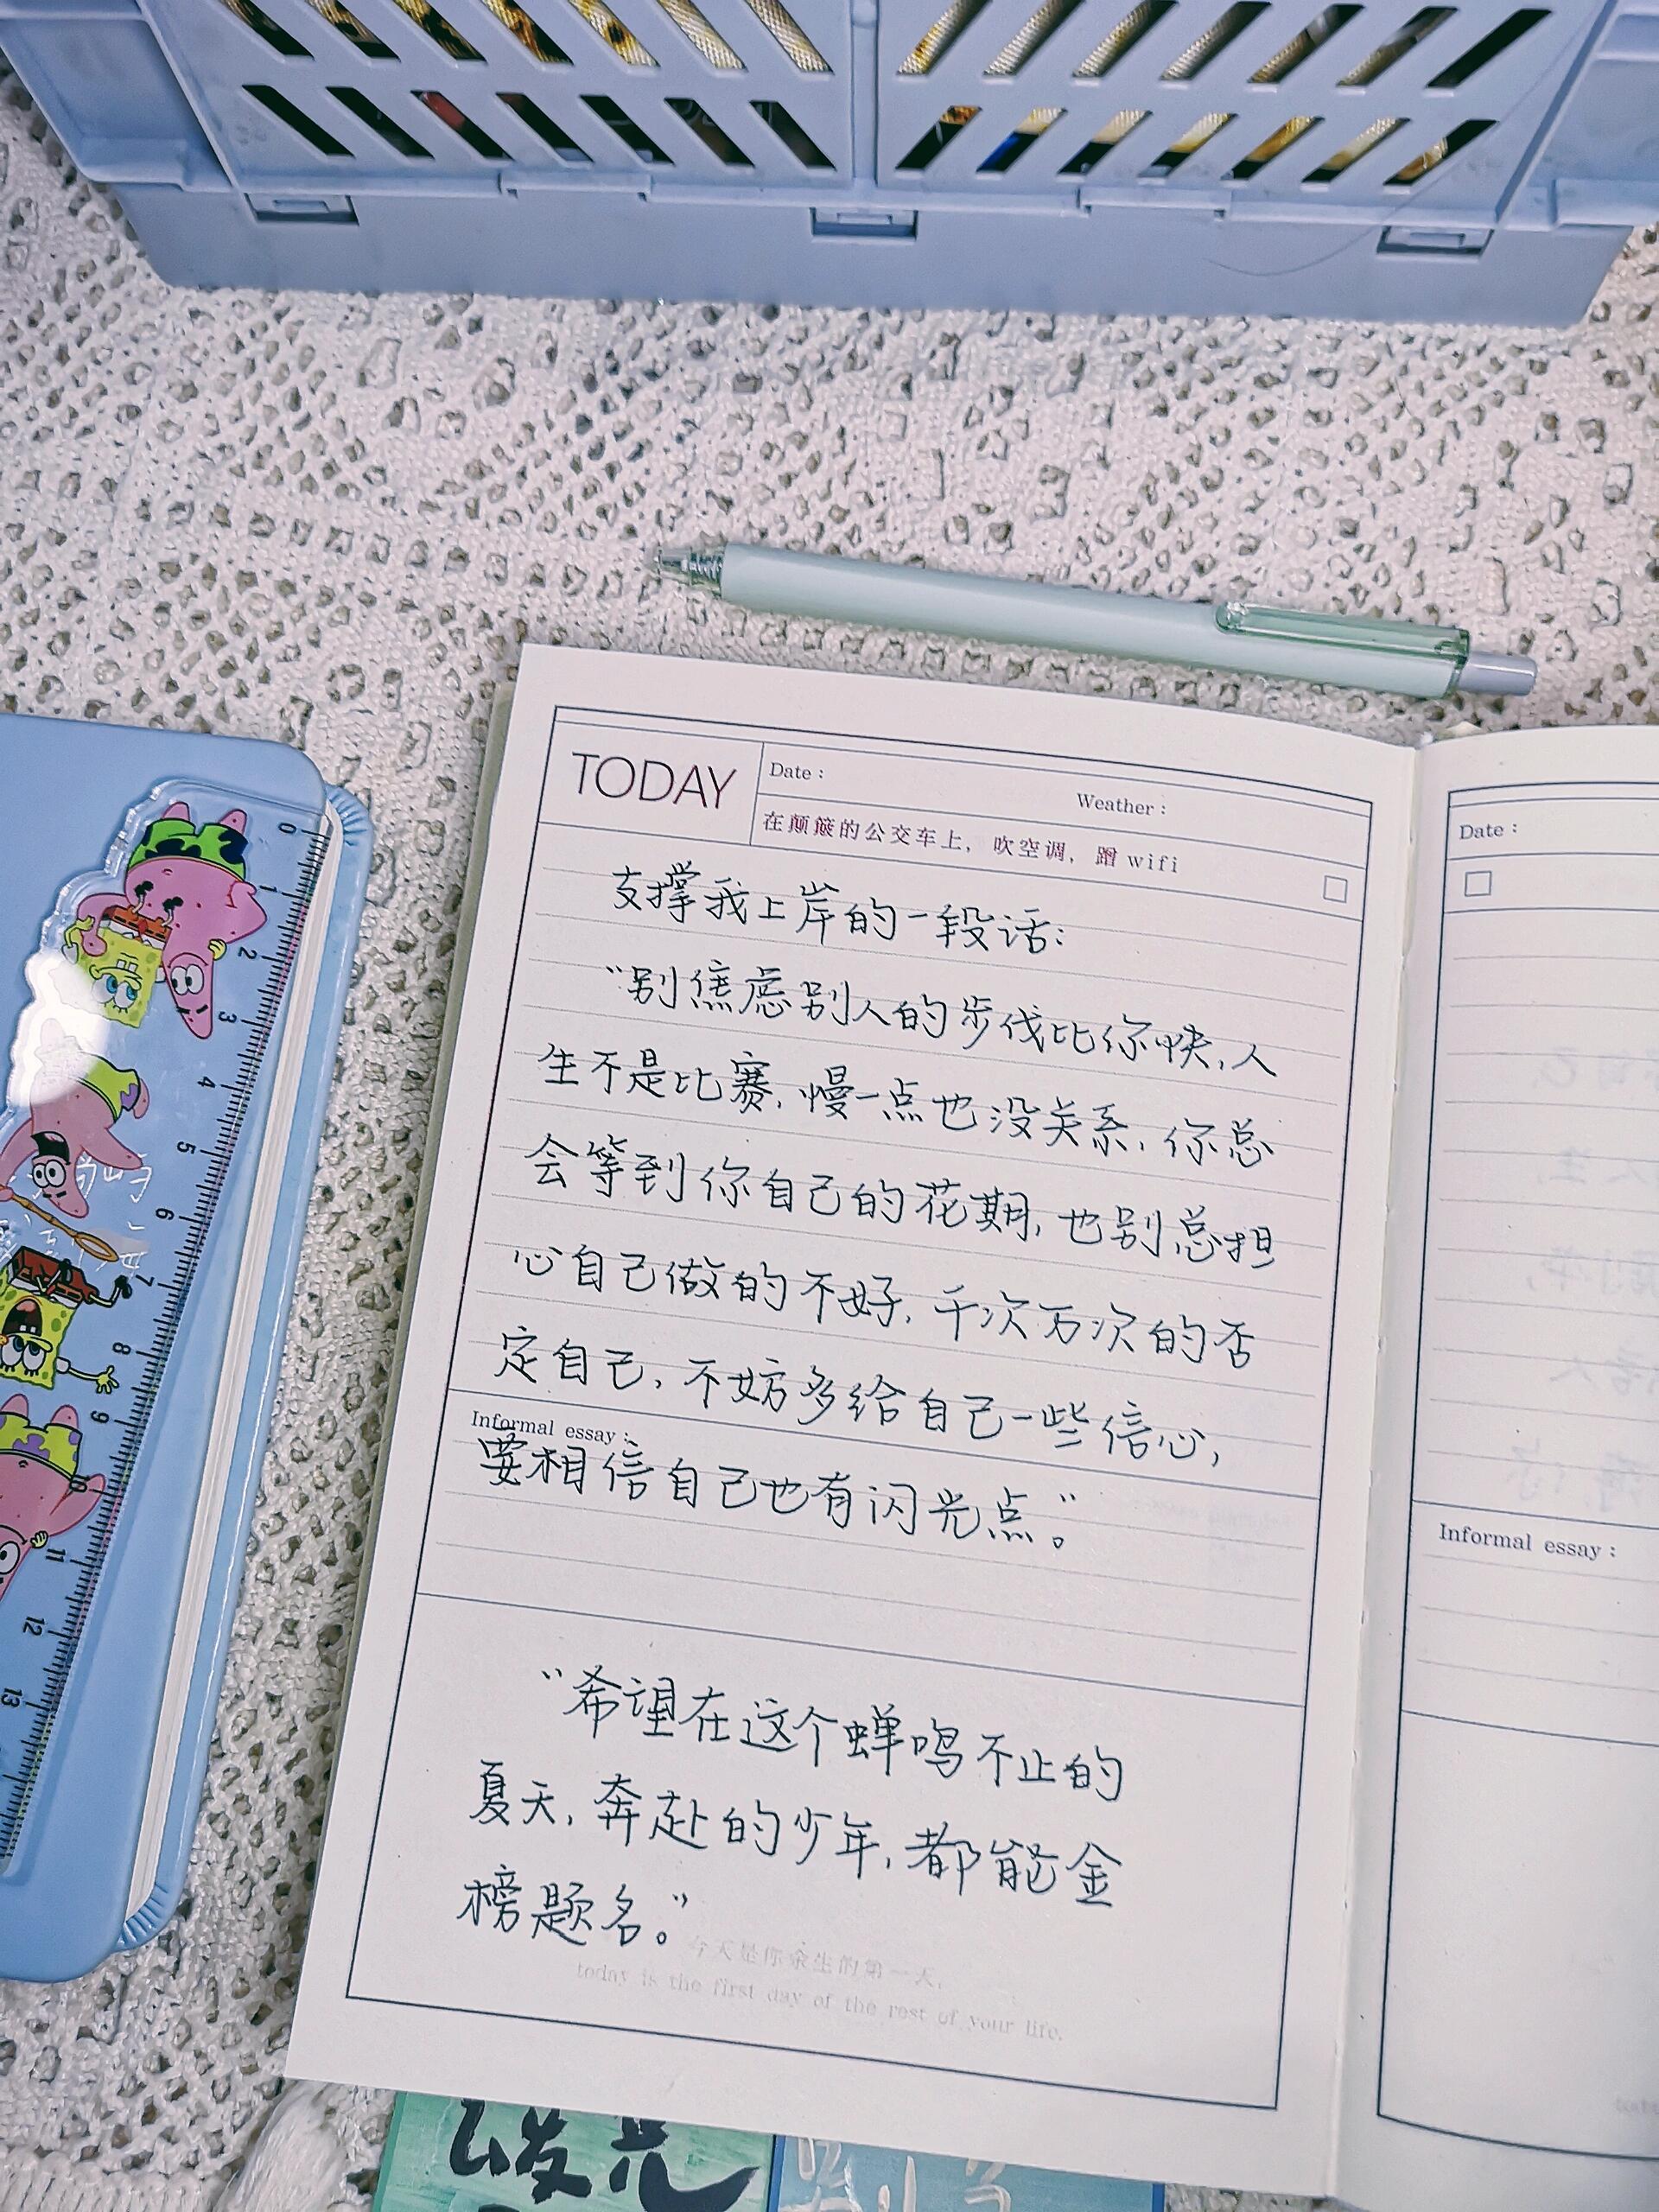 TODAY
Date：
Weather：
在颠簸的公交车上，吹空调，蹭 wifi
支撑我上岸的一段话：
“别焦虑别人的步伐比你快，人
生不是比赛，慢一点也没关系，你总
会等到你自己的花期，也别总担
心自己做的不好，千次万次的否
定自己，不妨多给自己一些信心，
Informal essay：
要相信自己也有闪光点。”
“希望在这个蝉鸣不止的
夏天，奔赴的少年，都能金
榜题名。”
今天是你余生的第一天，
today is the first day of the rest of your life.
Date：
Informal essay：
0
1
2
3
4
5
6
7
8
9
10
11
12
13